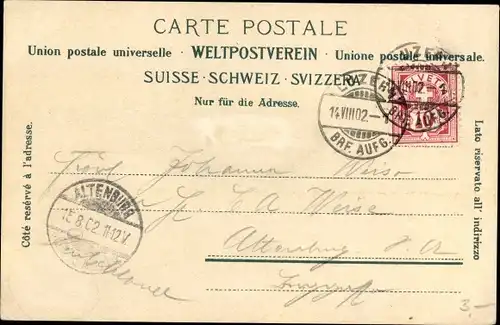 CARTE POSTALE
Union postale universelle · WELTPOSTVEREIN · Unione postale universale.
SUISSE · SCHWEIZ · SVIZZERA
Nur für die Adresse.
LUZERN
14.VIII.02.–4
BRF. AUFG.
LUZERN
VIII.02
BRF. AUFG.
HELVETIA
Côté reservé à l'adresse.
Lato riservato all' indirizzo
Johanna Weise
C A Weise
Altenburg S. A
ALTENBURG
15.8.02.11-12V.
3,-